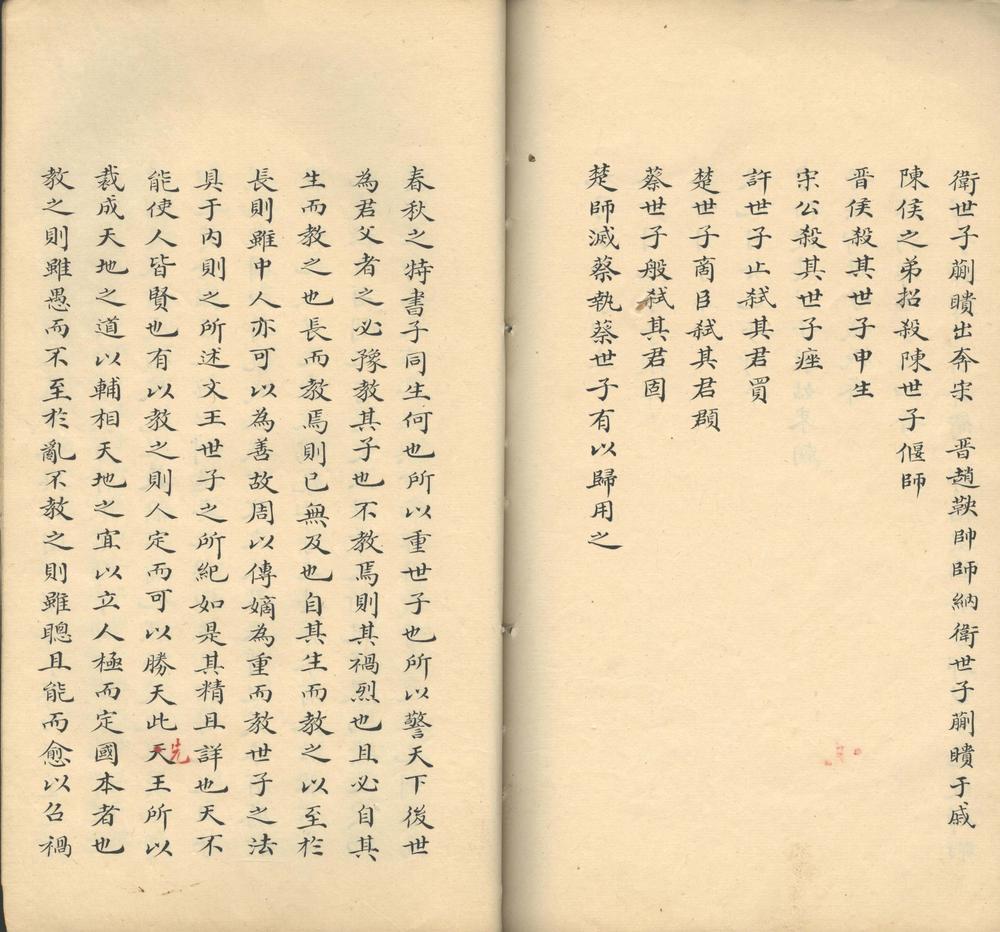 衛世子蒯聵出奔宋　晋趙鞅帥師納衛世子蒯聵于戚
陳侯之弟招殺陳世子偃師
晋侯殺其世子申生
宋公殺其世子痤
許世子止弑其君買
楚世子商臣弑其君頵
蔡世子般弑其君固
楚師滅蔡執蔡世子有以歸用之
春秋之特書子同生何也所以重世子也所以警天下後世
為君父者之必豫教其子也不教焉則其禍烈也且必自其
生而教之也長而教焉則已無及也自其生而教之以至於
長則雖中人亦可以為善故周以傳嫡為重而教世子之法
具于内則之所述文王世子之所紀如是其精且詳也天不
能使人皆賢也有以教之則人定而可以勝天此天王所以
先
裁成天地之道以輔相天地之宜以立人極而定國本者也
教之則雖愚而不至於亂不教之則雖聰且能而愈以召禍